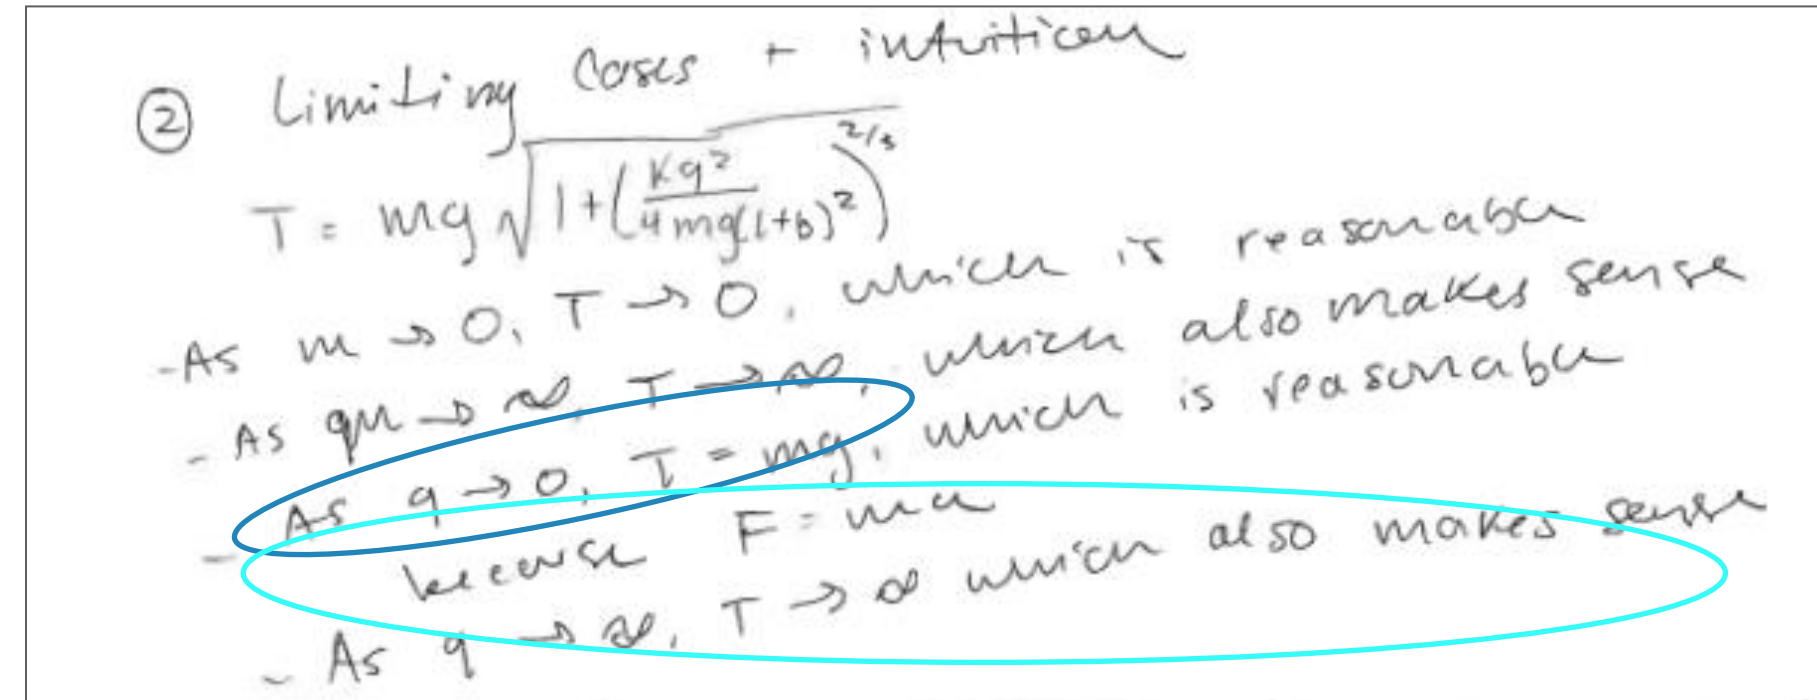 ② Limiting Cases + intuition
T = mg √(1+(Kq²/4mg(l+b)²)^2/3)
- As m → 0, T → 0, which is reasonable
- As m → ∞, T → ∞, which also makes sense
- As q → 0, T = mg, which is reasonable
because F = ma
- As q → ∞, T → ∞ which also makes sense